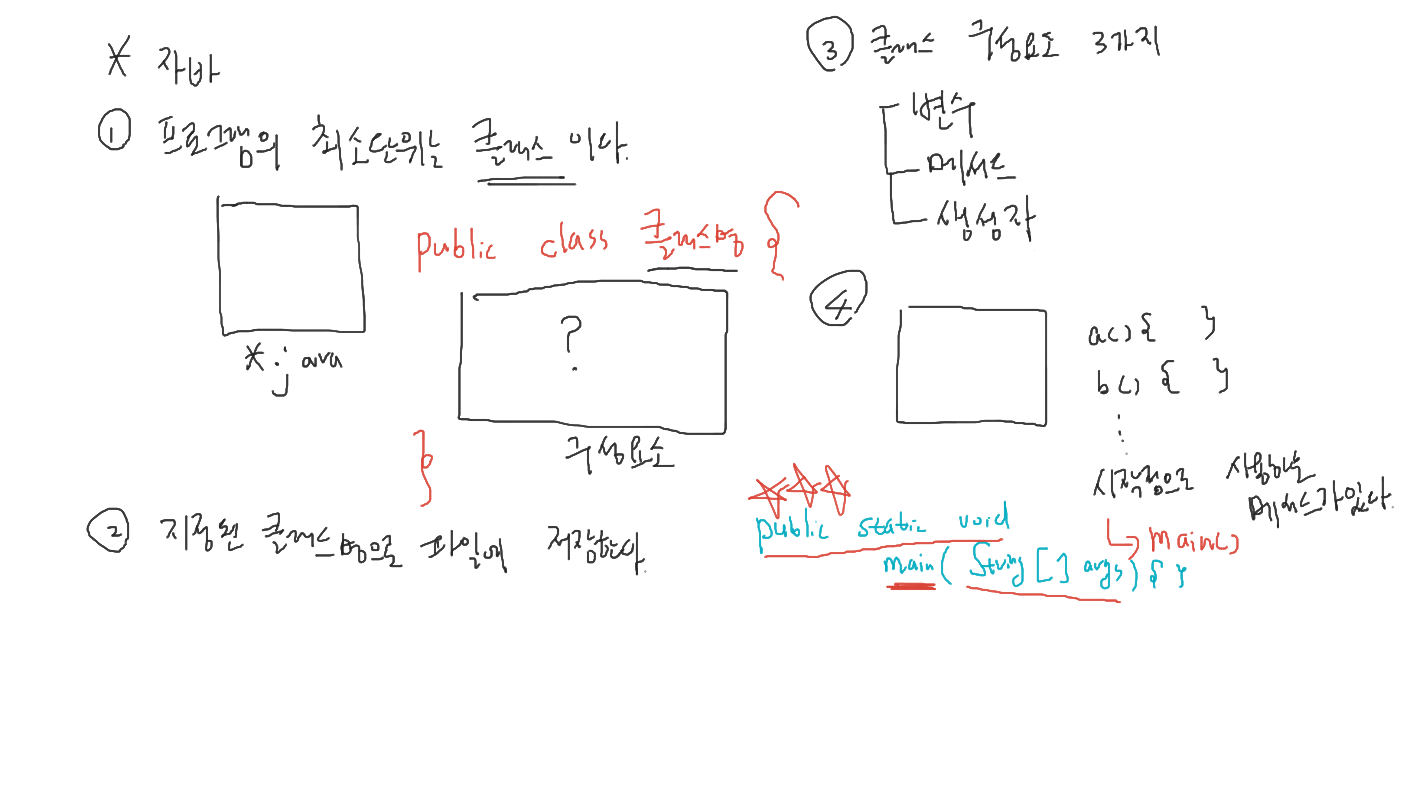 * 자바
① 프로그램의 최소단위는 클래스 이다.
public class 클래스명 {
?
*.java
구성요소
}
② 지정된 클래스명으로 파일에 저장한다.
③ 클래스 구성요소 3가지
변수
메서드
생성자
④
a() { }
b() { }
⋮
시작점으로 사용하는
메서드가 있다.
main()
public static void
main( String [ ] args) { }